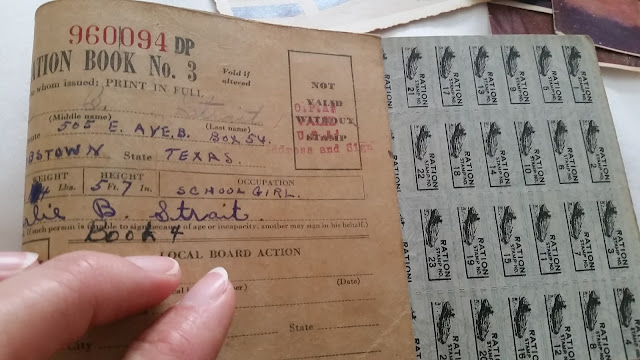 960094 DP
TION BOOK No. 3 Void if altered
whom issued: PRINT IN FULL
B. Strait
(Middle name) (Last name)
505 E. AVE. B. BOX 54.
BSTOWN State TEXAS.
NOT
VALID
WITHOUT
STAMP
O.P.A.
VALID
dress and Sig
EIGHT HEIGHT OCCUPATION
Lbs. 5 Ft. 7 In. SCHOOL GIRL.
lie B. Strait.
such person is unable to sign because of age or incapacity, another may sign in his behalf.)
BOOK 4
LOCAL BOARD ACTION
(Date)
State
RATION STAMP NO. 22
RATION STAMP NO. 17
RATION STAMP NO. 13
RATION STAMP NO. 9
RATION STAMP NO. 5
RATION STAMP NO. 22
RATION STAMP NO. 18
RATION STAMP NO. 14
RATION STAMP NO. 10
RATION STAMP NO. 23
RATION STAMP NO. 19
RATION STAMP NO. 15
RATION STAMP NO. 11
RATION STAMP NO. 7
RATION STAMP NO. 3
RATION STAMP NO. 24
RATION STAMP NO. 16
RATION STAMP NO. 12